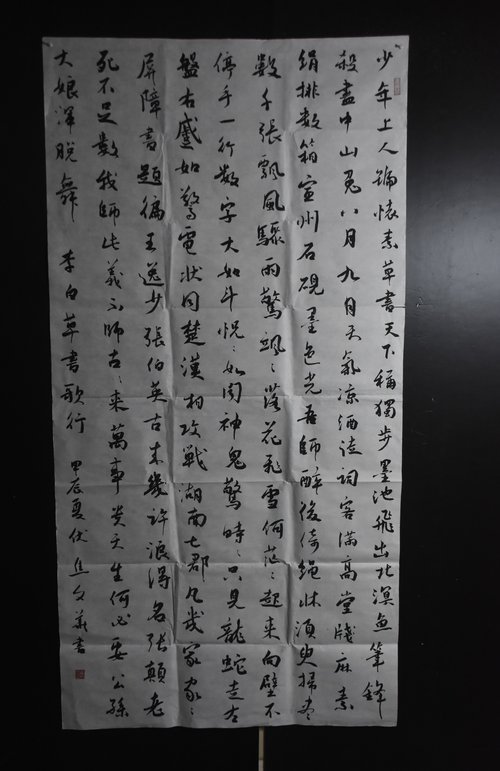 少年上人號懷素草書天下稱獨步墨池飛出北溟魚筆鋒
殺盡中山兔八月九月天氣涼酒徒詞客滿高堂牋麻素
絹排數箱宣州石硯墨色光吾師醉後倚繩床須臾掃盡
數千張飄風驟雨驚颯〻落花飛雪何茫〻起來向壁不
停手一行數字大如斗怳〻如聞神鬼驚時〻只見龍蛇走左
盤右蹙如驚電狀同楚漢相攻戰湖南七郡凡幾家家〻
屏障書題徧王逸少張伯英古來幾許浪得名張顛老
死不足數我師此義不師古〻來萬事貴天生何必要公孫
大娘渾脫舞 李白草書歌行 甲辰夏伏 焦文義書